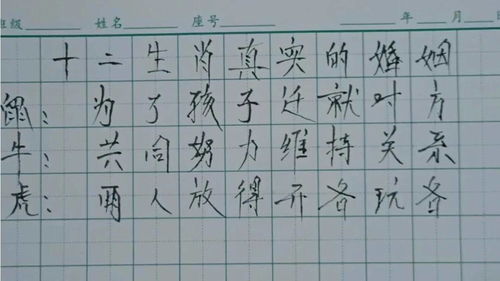 班级 姓名 座号 年 月
十二生肖真实的婚姻
鼠:为了孩子迁就对方
牛:共同努力维持关系
虎:两人放得开各玩各